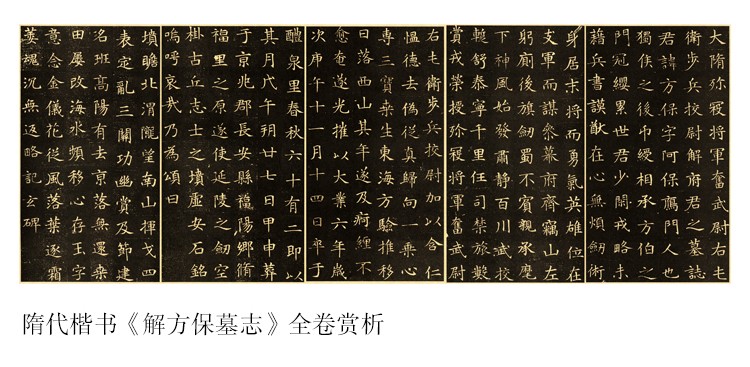 大隋殄寇將軍奮武尉右屯
衛步兵挍尉解府君之墓誌
君諱方保字阿保鴈門人也
獨佚之後巾纓相承方伯之
門冠纓累世君少閑戎略未
藉兵書謨猷在心無煩劒術
身居末將而勇氣英雄位在
支軍而謀叅幕府齊竊山左
躬廁後旗劒蜀不賓親承麾
下神風始發肅静百川武挍
蹔舒泰寧千里任司禁旅數
賞戎榮授殄寇將軍奮武尉
右屯衛步兵挍尉加以含仁
愠德去偽從真歸向一乗心
專三寶桒生東海方驗推移
日落西山其年遂及痾纏不
愈奄遂光摧以大業六年歲
次庚午十一月十四日卒于
醴泉里春秋六十有二即以
其月戊午朔廿七日甲申葬
于京兆郡長安縣龍陽鄉脩
福里之原遂使延陵之劒空
掛古丘志士之墳虛安石銘
嗚呼哀哉乃為頌曰
墳瞻北渭隴望南山揮戈四
表定亂三關功幽賞及節建
名班高陽有去京落無還桒
田屢改海水頻移心存玉字
意念金儀花從風落葉逐霜
萎魂沉無返略記玄碑
隋代楷书《解方保墓志》全卷赏析